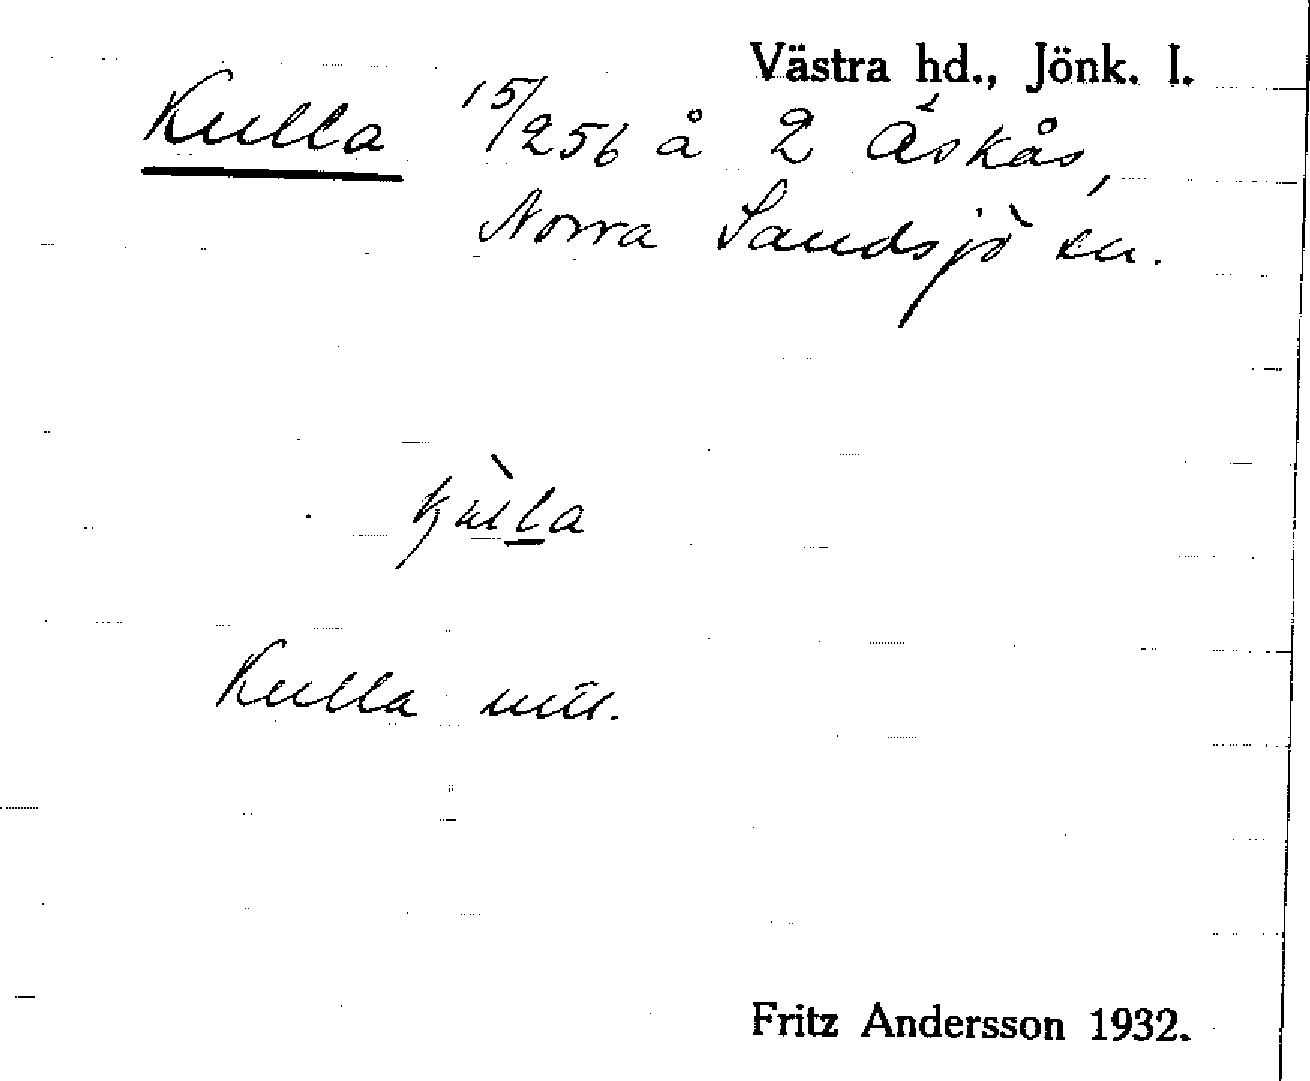 Västra hd., Jönk. l.
Kulla 15/256 å 2 Äskås,
Norra Sandsjö sn.
Kulla
Fritz Andersson 1932.